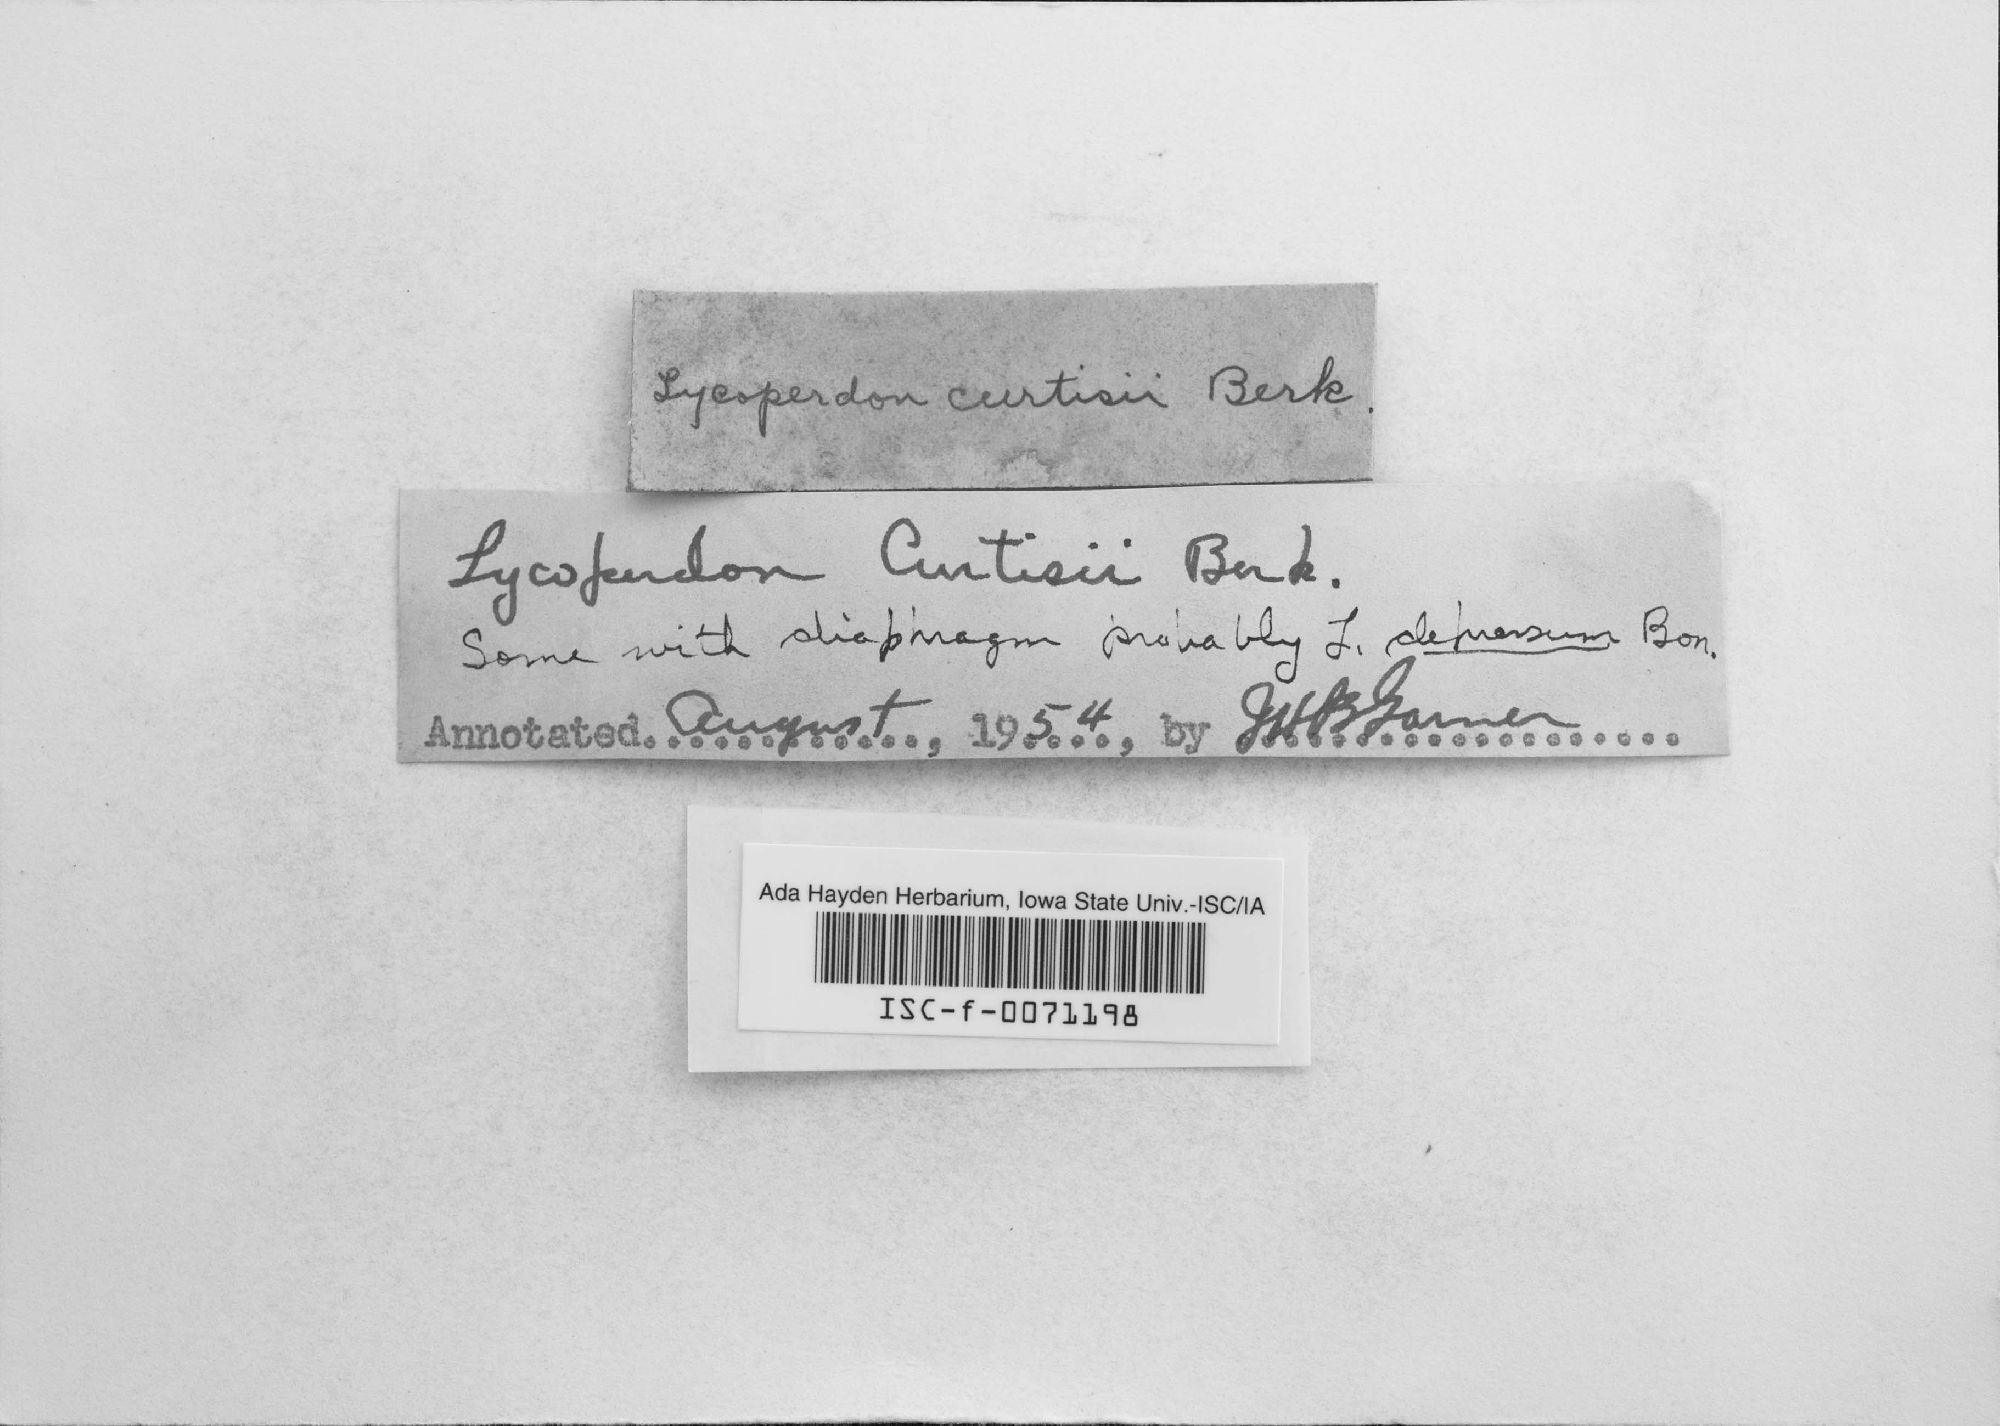 Lycoperdon curtisii Berk.
Lycoperdon Curtisii Berk.
Some with diaphragm probably L. depressum Bon.
Annotated August, 1954, by JHB Garner
Ada Hayden Herbarium, Iowa State Univ.-ISC/IA
ISC-f-0071198